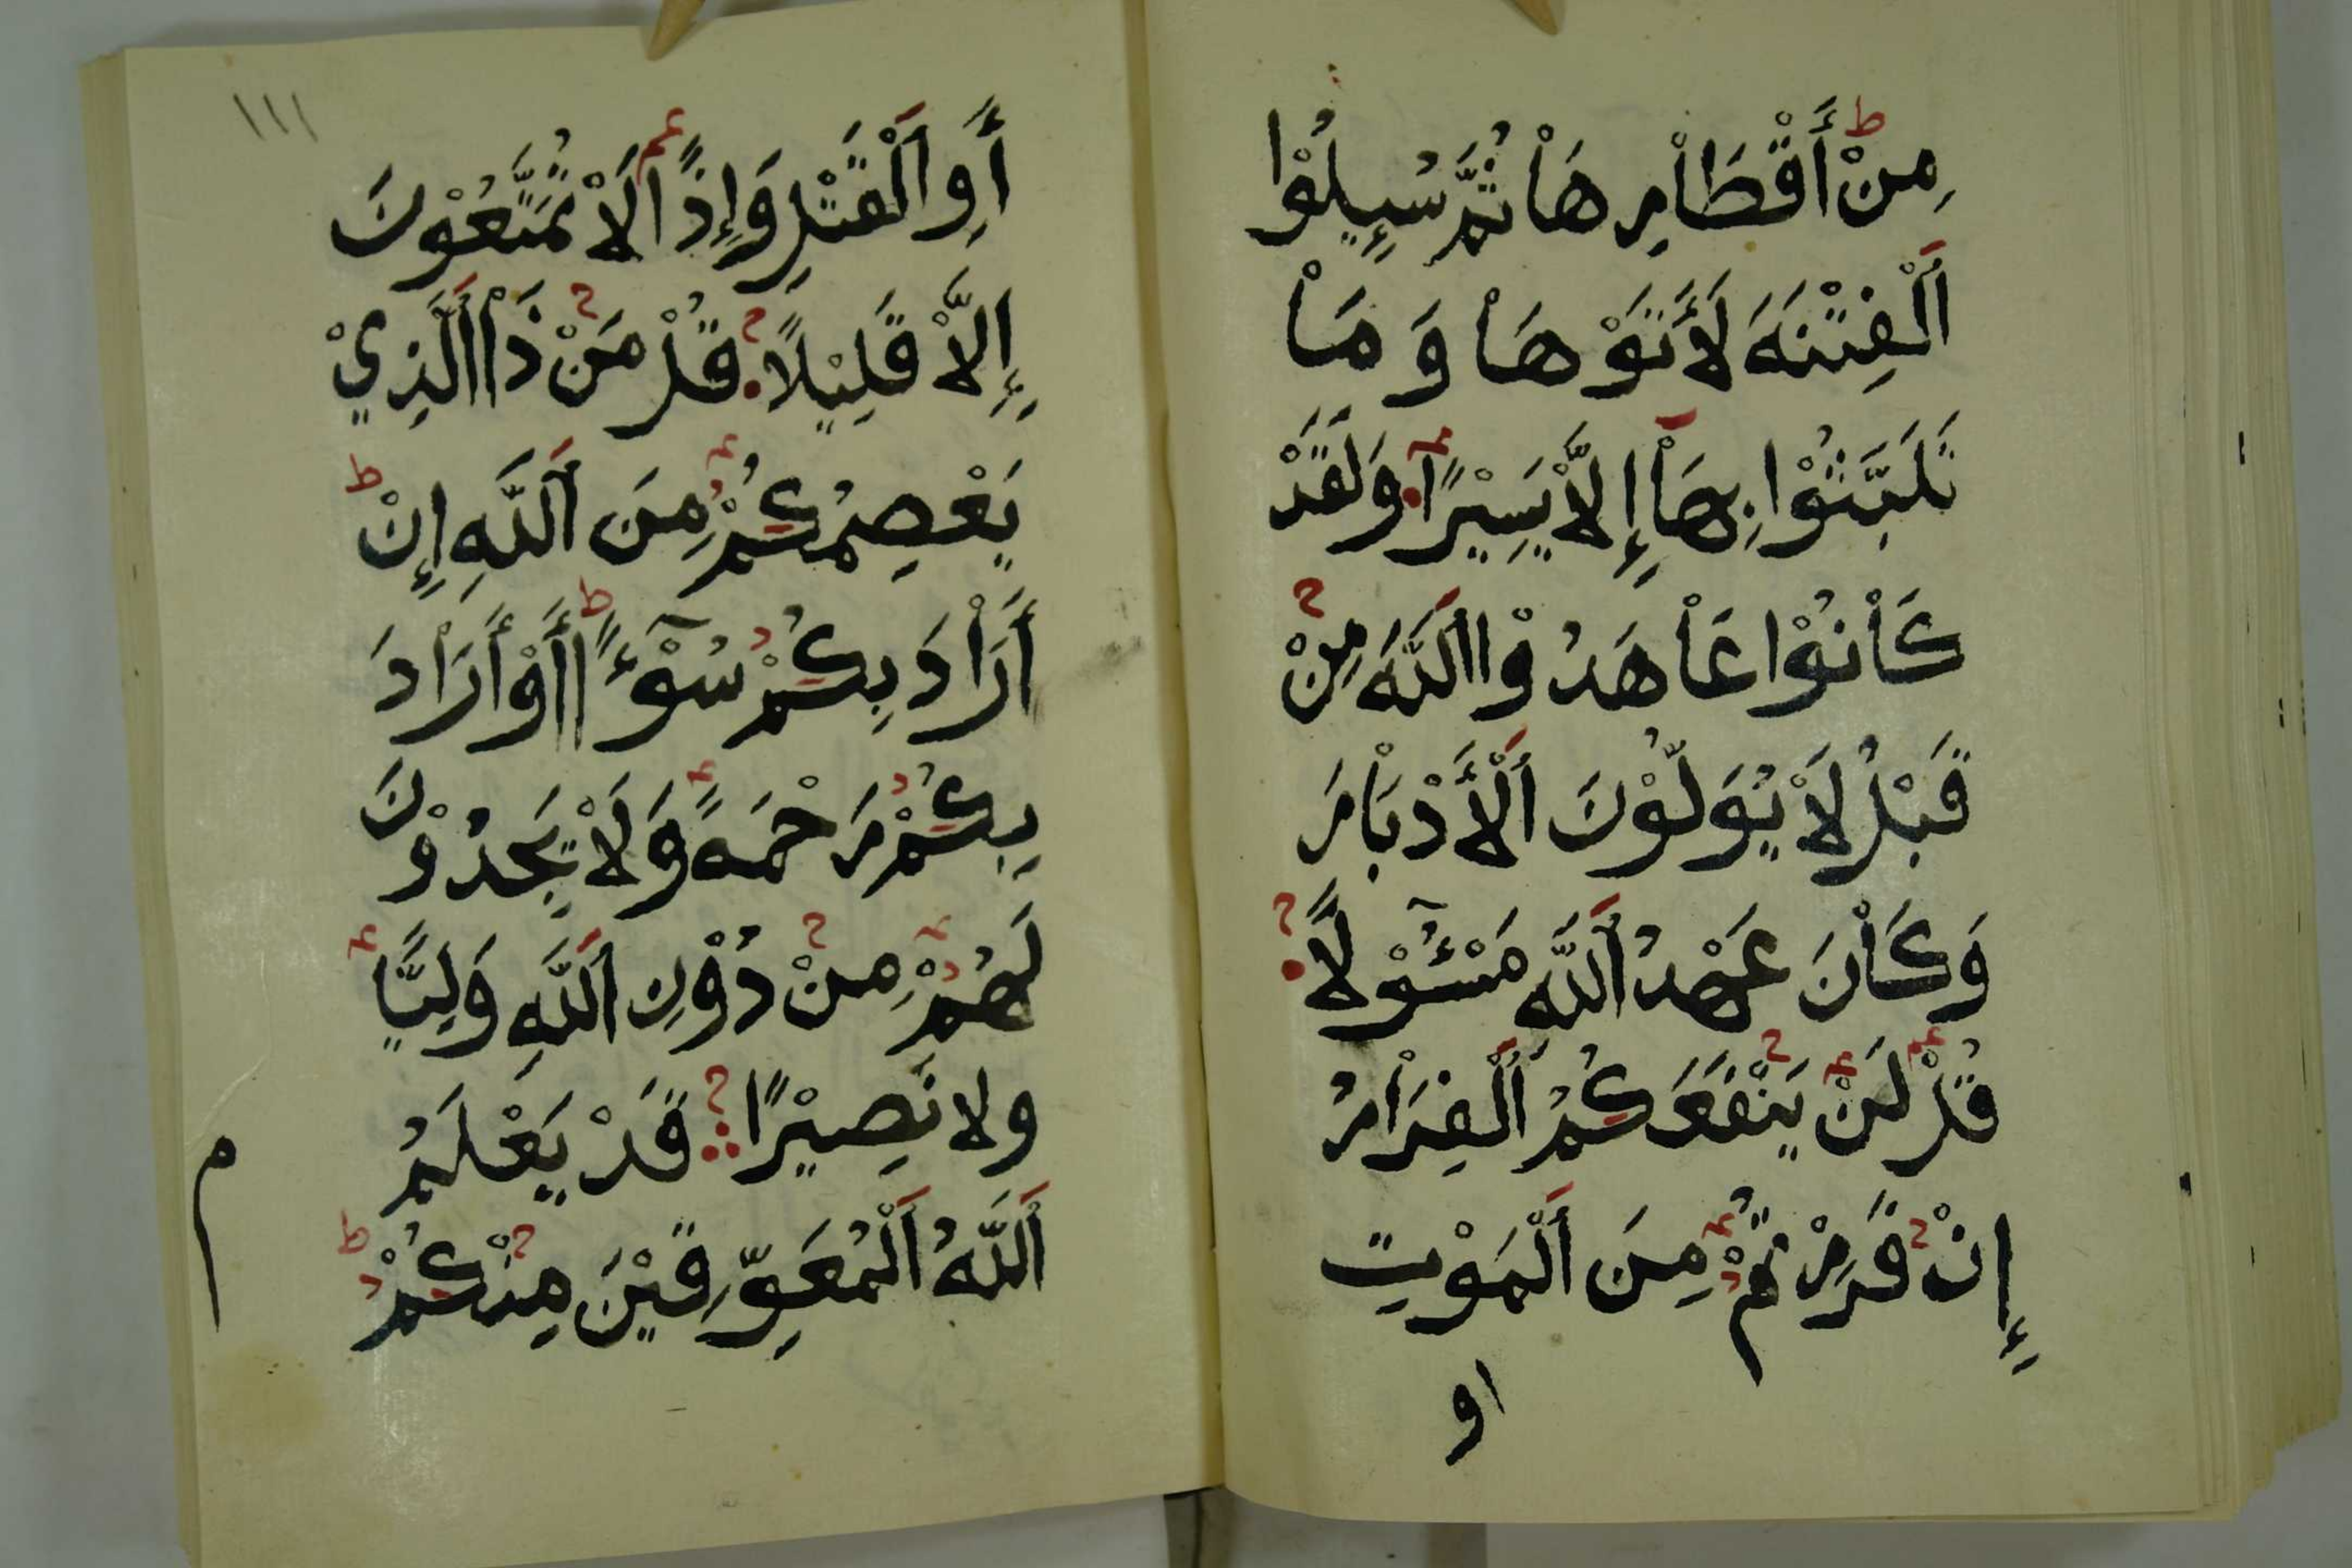 مِنْ أَقْطَاْرِ هَاْ ثُمَّ سُئِلُوْا
اَلْفِتْنَةَ لَأَتَوْهَاْ وَمَاْ
تَلَبَّثُوْا بِهَاْ إِلَّاْ يَسِيْرًا وَلَقَدْ
كَاْنُوْا عَاْهَدُوْا اَللَّهَ مِنْ
قَبْلُ لَاْ يُوَلُّوْنَ اَلْأَدْبَاْرَ
وَكَاْنَ عَهْدُ اَللَّهِ مَسْئُوْلًا
قُلْ لَنْ يَنْفَعَكُمُ اَلْفِرَاْرُ
إِنْ فَرَرْتُمْ مِنَ اَلْمَوْتِ
او
١١١
أَوِ اَلْقَتْلِ وَإِذًا لَاْ تُمَتَّعُوْنَ
إِلَّاْ قَلِيْلًا قُلْ مَنْ ذَاْ اَلَّذِيْ
يَعْصِمُكُمْ مِنَ اَللَّهِ إِنْ
أَرَاْدَ بِكُمْ سُوْٓءًا أَوْ أَرَاْدَ
بِكُمْ رَحْمَةً وَلَاْ يَجِدُوْنَ
لَهُمْ مِنْ دُوْنِ اَللَّهِ وَلِيًّا
ولا نَصِيْرًا قَدْ يَعْلَمُ
اَللَّهُ اَلْمُعَوِّقِيْنَ مِنْكُمْ
م